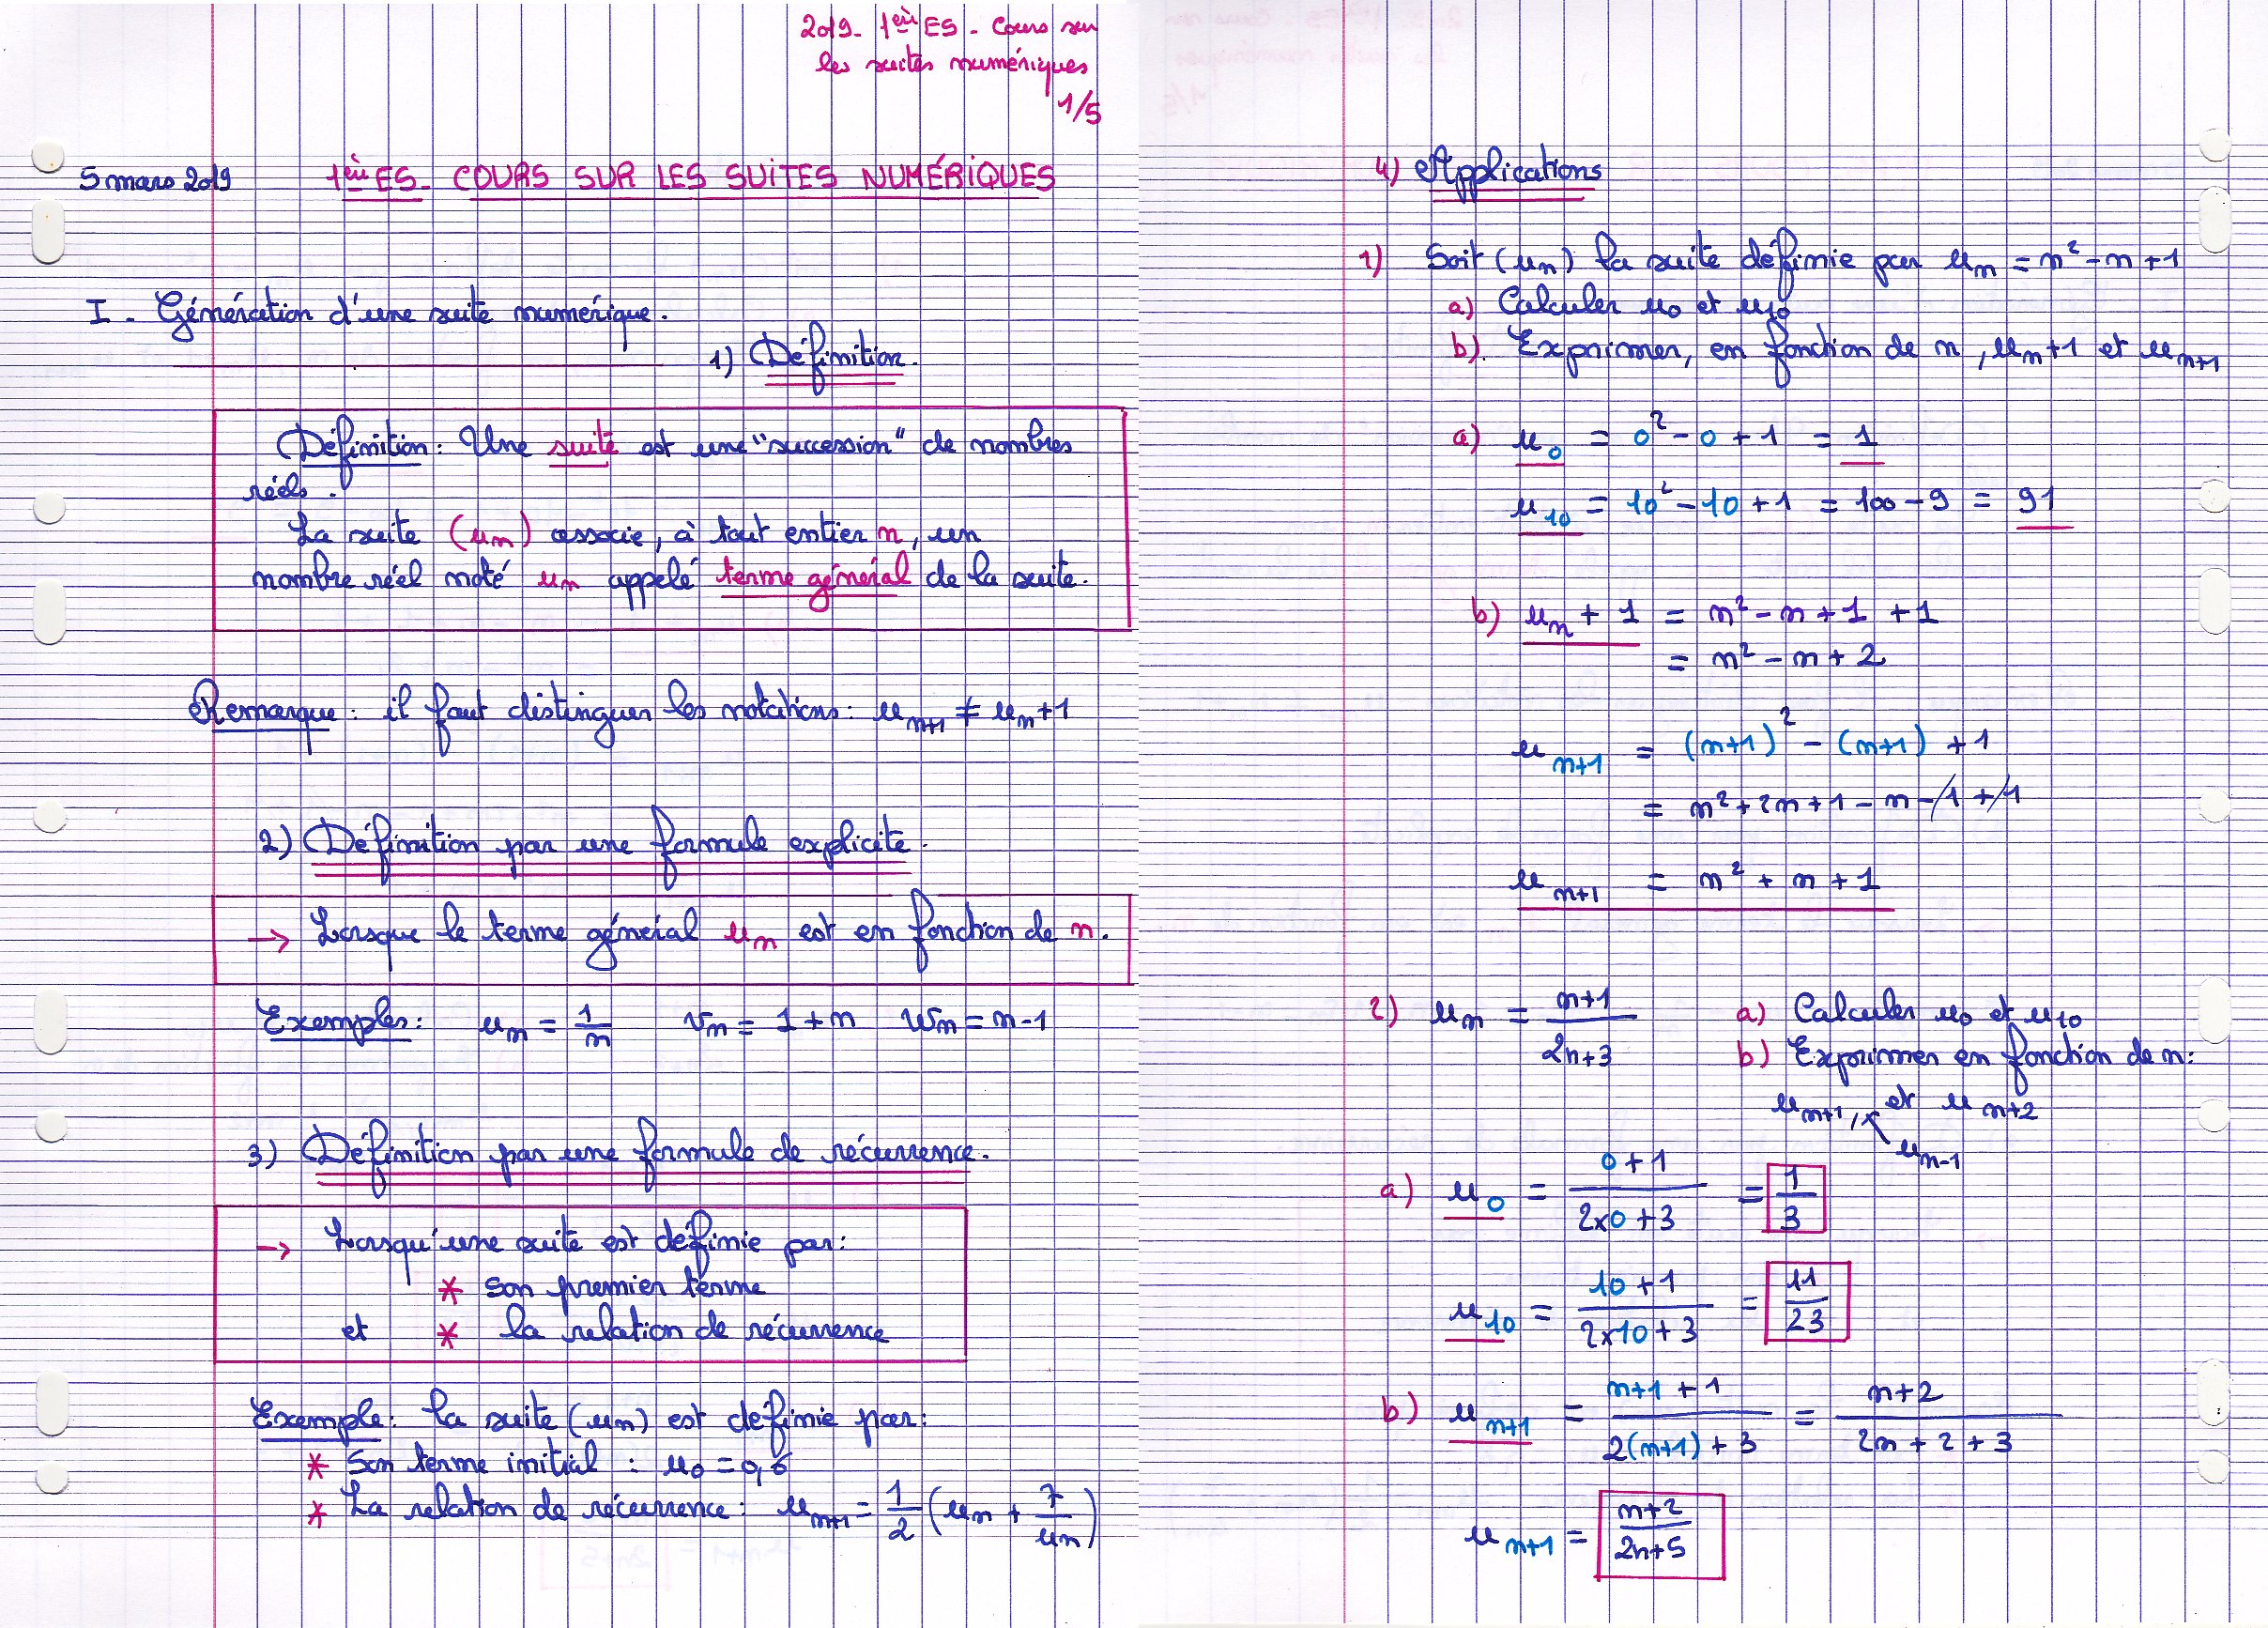 2019- 1ère ES - Cours sur
les suites numériques
1/5
5 mars 2019
1ère ES - COURS SUR LES SUITES NUMÉRIQUES
I - Génération d'une suite numérique.
1) Définition.
Définition : Une suite est une "succession" de nombres
réels.
La suite (un) associe, à tout entier n, un
nombre réel noté un appelé terme général de la suite.
Remarque : il faut distinguer les notations : u_{n+1} ≠ u_n+1
2) Définition par une formule explicite.
→ Lorsque le terme général un est en fonction de n.
Exemples : u_n = 1/n v_n = 1+n w_n = n-1
3) Définition par une formule de récurrence.
→ Lorsqu'une suite est définie par :
* son premier terme
et * la relation de récurrence
Exemple : la suite (un) est définie par :
* Son terme initial : u_0 =
* La relation de récurrence : u_{n+1} = 1/2 (u_n + 7/u_n)
4) Applications
1) Soit (un) la suite définie par u_n = n² - n + 1
a) Calculer u_0 et u_10
b) Exprimer, en fonction de n, u_n+1 et u_{n+1}
a) u_0 = 0² - 0 + 1 = 1
u_10 = 10² - 10 + 1 = 100 - 9 = 91
b) u_n + 1 = n² - n + 1 + 1
= n² - n + 2
u_{n+1} = (n+1)² - (n+1) + 1
= n² + 2n + 1 - n - 1 + 1
u_{n+1} = n² + n + 1
2) u_n = (n+1)/(2n+3) a) Calculer u_0 et u_10
b) Exprimer en fonction de n :
u_{n+1}, et u_{n+2}
u_{n-1}
a) u_0 = (0+1)/(2×0+3) = 1/3
u_10 = (10+1)/(2×10+3) = 11/23
b) u_{n+1} = (n+1+1)/(2(n+1)+3) = (n+2)/(2n+2+3)
u_{n+1} = (n+2)/(2n+5)